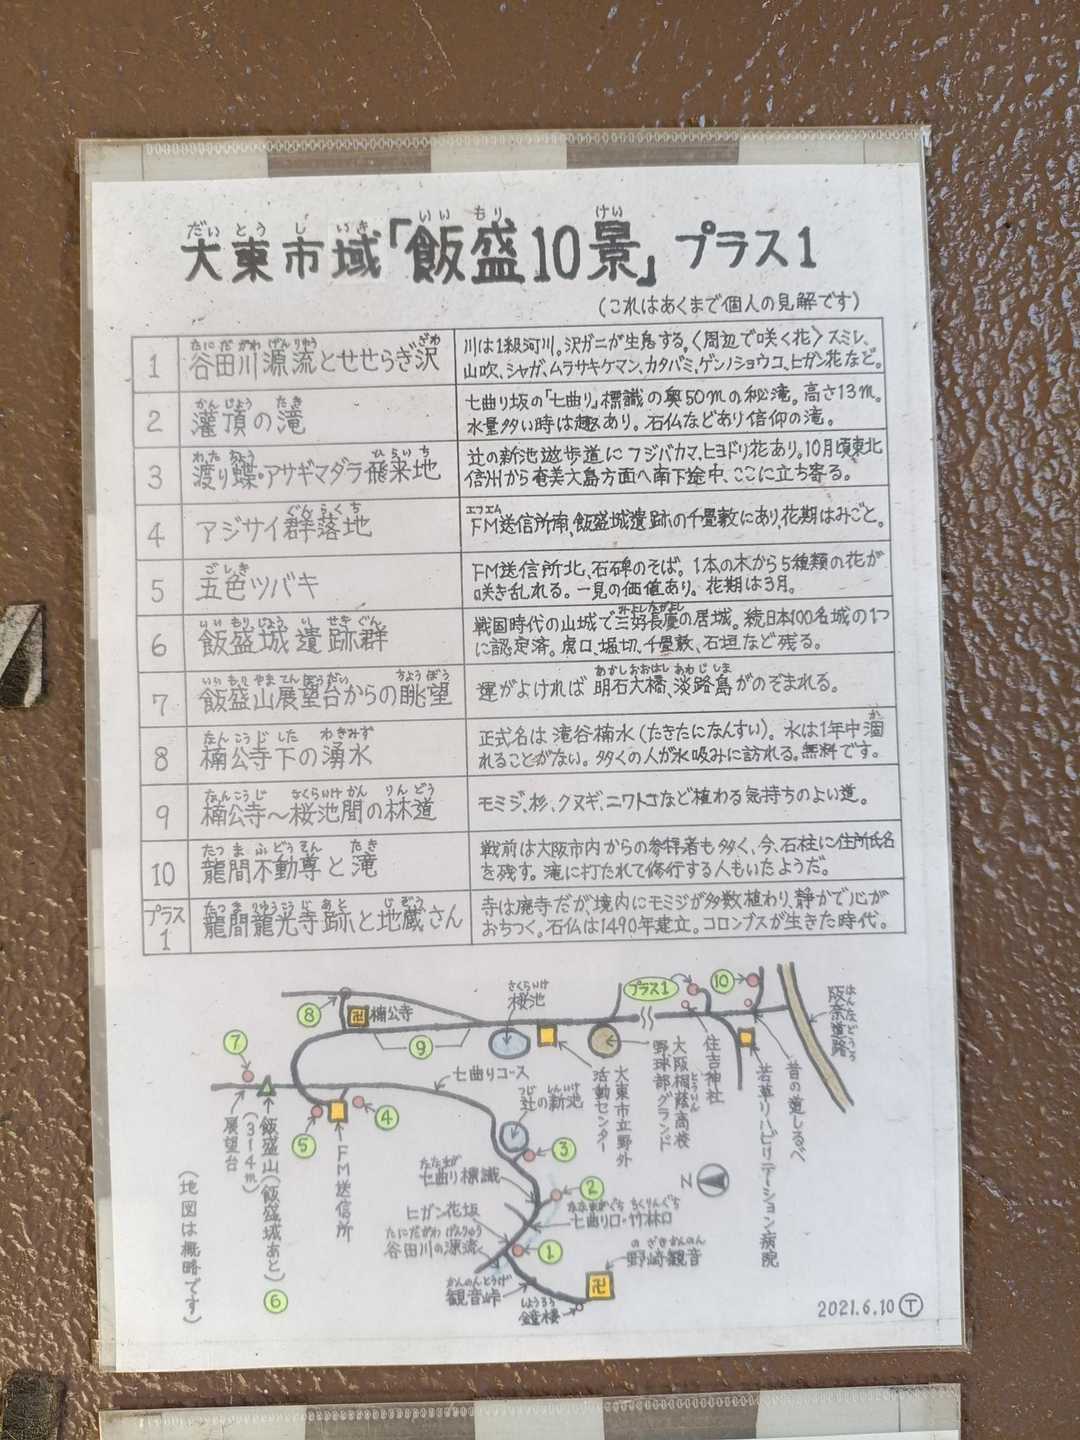 大東市域「飯盛10景」プラス1
(これはあくまで個人の見解です)
1 谷田川源流とせせらぎ沢
川は1級河川。沢ガニが生息する。〈周辺で咲く花〉スミレ、
山吹、シャガ、ムラサキケマン、カタバミ、ゲンノショウコ、ヒガン花など。
2 灌頂の滝
七曲り坂の「七曲り」標識の奥50mの秘滝。高さ13m。
水量多い時は趣あり。石仏などあり信仰の滝。
3 渡り蝶・アサギマダラ飛来地
辻の新池遊歩道にフジバカマ、ヒヨドリ花あり。10月頃東北
信州から奄美大島方面へ南下途中、ここに立ち寄る。
4 アジサイ群落地
FM送信所南、飯盛城遺跡の千畳敷にあり、花期はみごと。
5 五色ツバキ
FM送信所北、石碑のそば。1本の木から5種類の花が
咲き乱れる。一見の価値あり。花期は3月。
6 飯盛城遺跡群
戦国時代の山城で三好長慶の居城。続日本100名城の1つ
に認定済。虎口、堀切、千畳敷、石垣など残る。
7 飯盛山展望台からの眺望
運がよければ明石大橋、淡路島がのぞまれる。
8 楠公寺下の湧水
正式名は滝谷楠水(たきたになんすい)。水は1年中涸
れることがない。多くの人が水汲みに訪れる。無料です。
9 楠公寺~桜池間の林道
モミジ、杉、クヌギ、ニワトコなど植わる気持ちのよい道。
10 龍間不動尊と滝
戦前は大阪市内からの参拝者も多く、今、石柱に住所氏名
を残す。滝に打たれて修行する人もいたようだ。
プラス1 龍間龍光寺跡と地蔵さん
寺は廃寺だが、境内にモミジが多数植わり、静かで心が
おちつく。石仏は1490年建立。コロンブスが生きた時代。
桜池
プラス1
10
8
卍楠公寺
9
7
七曲りコース
辻の新池
大東市立野外
活動センター
大阪桐蔭高校
野球部グランド
住吉神社
若草リハビリテーション病院
昔の道しるべ
阪奈道路
展望台
飯盛山(飯盛城あと)
(314m)
6
5
4
FM送信所
(地図は概略です)
3
七曲り標識
2
N
ヒガン花坂
七曲り口・竹林口
谷田川の源流
1
野崎観音
卍
観音峠
鐘楼
2021.6.10 T